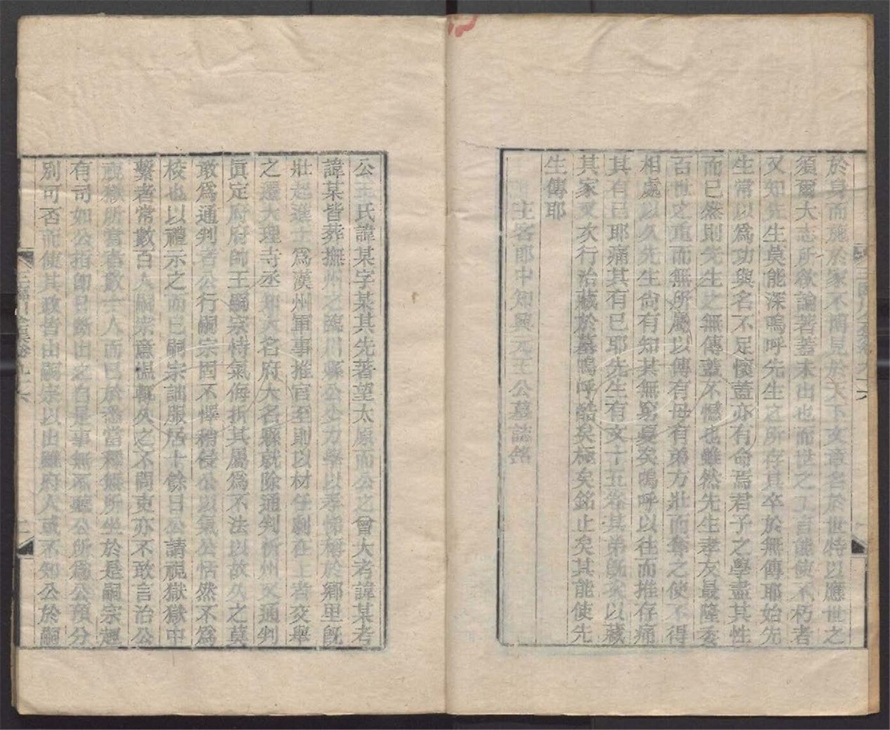 於身而施於家不博見於天下文章名於世特以應世之
須爾大志所欲論著蓋未出也而世之工言能使不朽者
又知先生莫能深嗚呼先生之所存其卒於無傳耶始先
生常以爲功與名不足懷蓋亦有命焉君子之學盡其性
而已然則先生之無傳蓋不憾也雖然先生孝友最隆委
百世之重而無所屬以傳有母有弟方壯而奪之使不得
相處以久先生尙有知其無窮憂矣嗚呼以往而推存痛
其有已耶痛其有已耶先生有文十五卷其弟旣次以藏
其家又次行治藏於墓嗚呼酷矣極矣銘止矣其能使先
生傳耶
主客郎中知興元王公墓誌銘
公王氏諱某字某其先著望太原而公之曾大考諱某考
諱某皆葬撫州之臨川縣公少力學以孝悌稱於鄉里旣
壯起進士爲漢州軍事推官至則以材任劇在上者交舉
之遷大理寺丞知大名府大名縣就除通判忻州又通判
眞定府府帥王嗣宗恃氣侮折其屬爲不法以故久之莫
敢爲通判者公行嗣宗固不懌稍侵公以氣公恬然不爲
校也以禮示之而已嗣宗詘服居十餘日公請視獄獄中
繫者常數百人嗣宗意愠輒久之不問吏亦不敢言治公
視獄所當者數十人而已於悉當釋無所坐於是嗣宗趣
有司如公指卽日斷出之自是事無不聽公所爲公預分
別可否而使其政皆由嗣宗以出雖府人或不知公於嗣